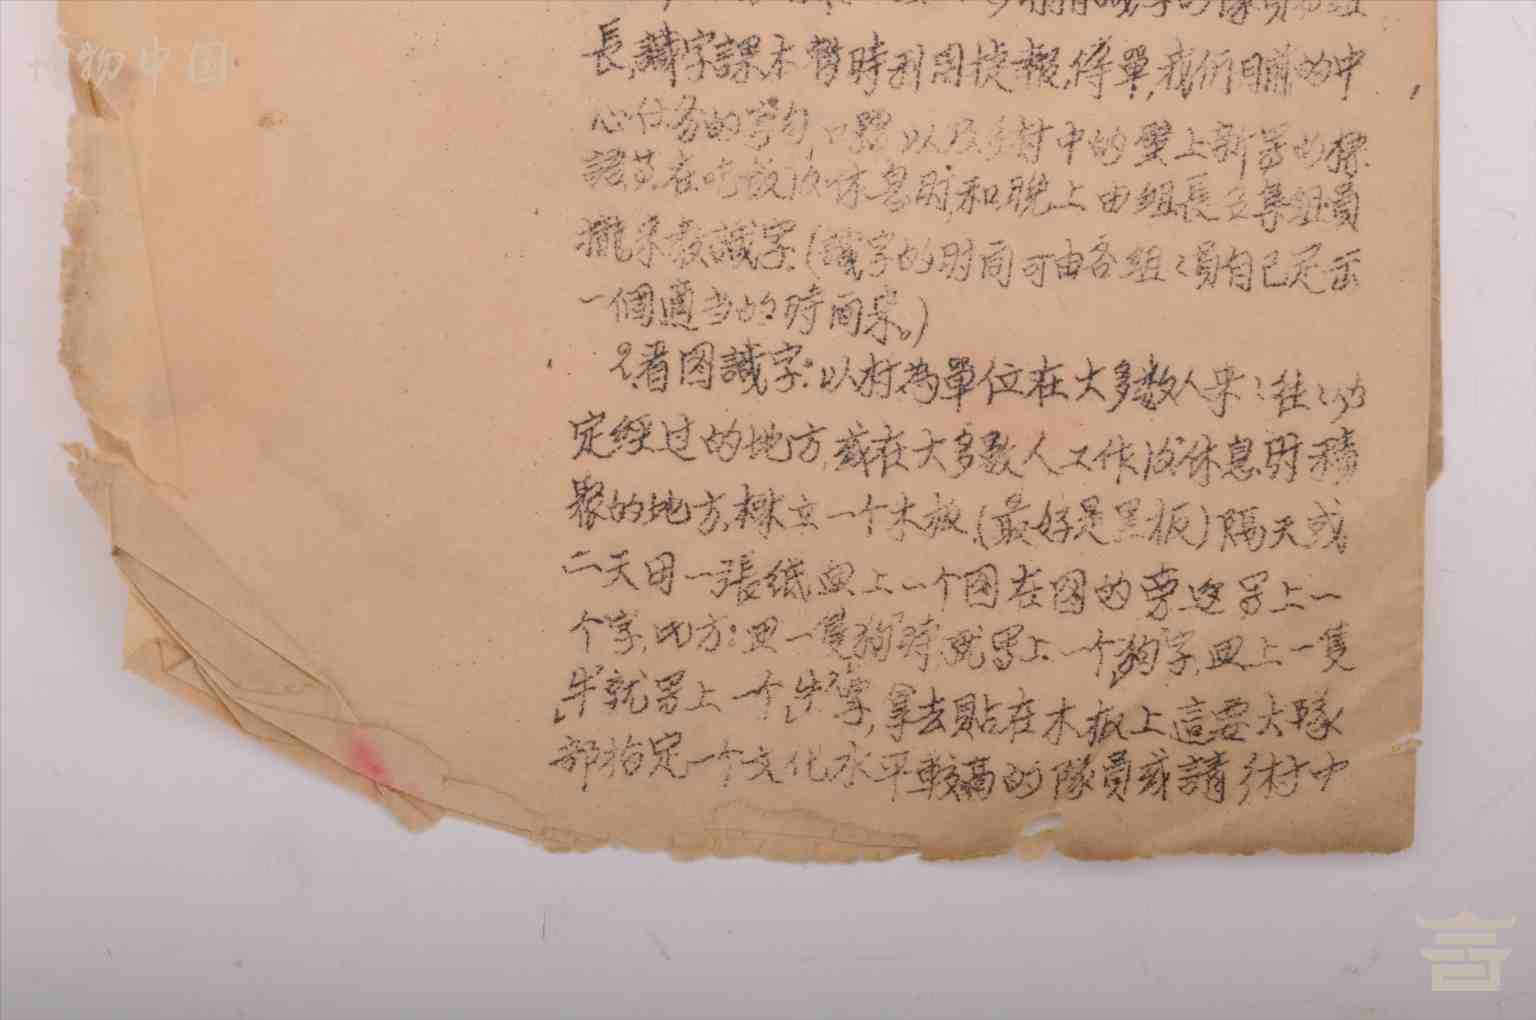 博物中国
長,識字課本暫時利用捷報,傳單,我们目前的中
心任务的字句,口號以及乡村中的壁上新写的標
語等,在吃飯后休息时和晚上由組長召集組員
攏来教識字(識字的时间可由各組〻員自己定出
一個適当的時间来。)
2.看图識字:以村為單位在大多数人来〻往〻必
定經过的地方,或在大多数人工作后休息时積
聚的地方,樹立一个木板(最好是黑板)隔天或
二天用一張纸画上一个图在图的旁边写上一
个字,比方:画一隻狗時,就写上一个狗字,画上一隻
牛就写上一个牛字,拿去貼在木板上這要大隊
部指定一个文化水平較高的隊員或請乡村中